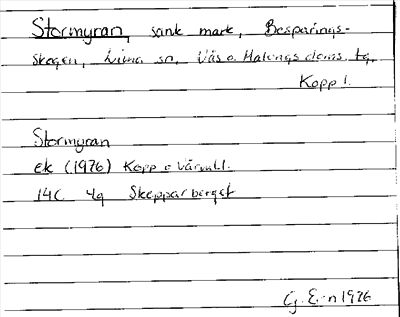 Stormyran, sank mark, Besparings-
skogen, Lima sn, Väs o. Malungs doms. tg.
Kopp l.
Stormyran
ek (1976) Kopp o Vårvall.
14C 4g Skepparberget
G. E-n 1976